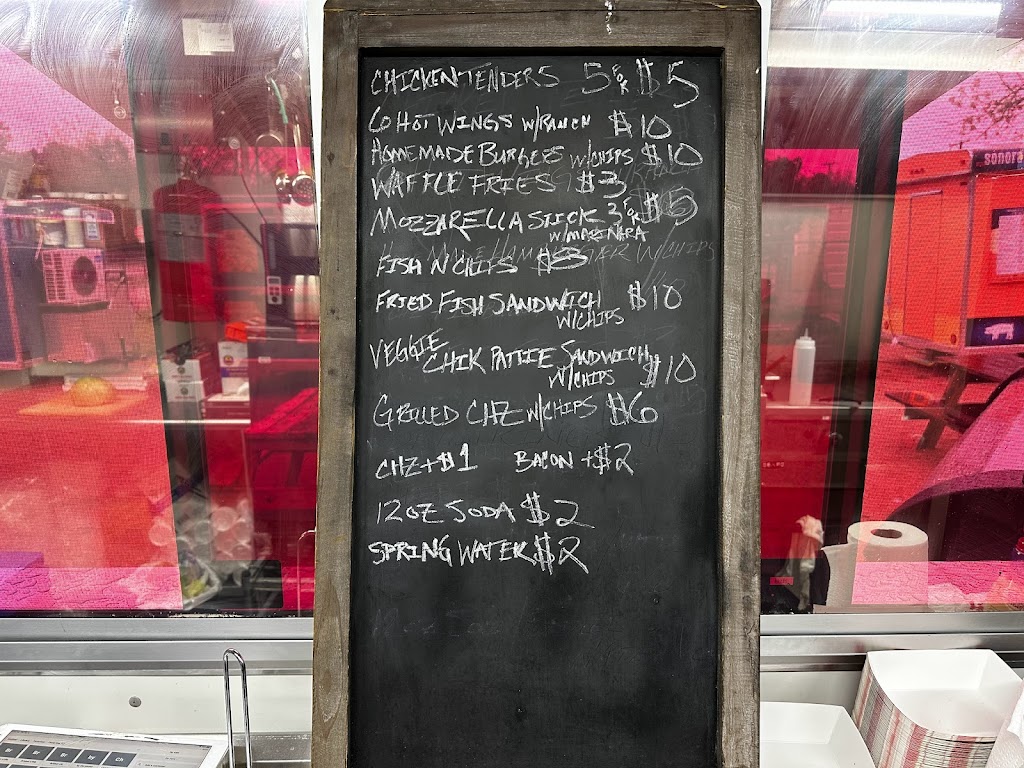 CHICKEN TENDERS 5 FOR $5
6 HOT WINGS W/RANCH $10
HOMEMADE BURGERS W/CHIPS $10
WAFFLE FRIES $3
MOZZARELLA STICK 3 FOR $5
W/MARINARA
FISH N CHIPS
FRIED FISH SANDWICH $10
W/CHIPS
VEGGIE
CHIK PATTIE SANDWICH $10
W/CHIPS
GRILLED CHZ W/CHIPS $6
CHZ +$1 BACON +$2
12OZ SODA $2
SPRING WATER $2
sonora